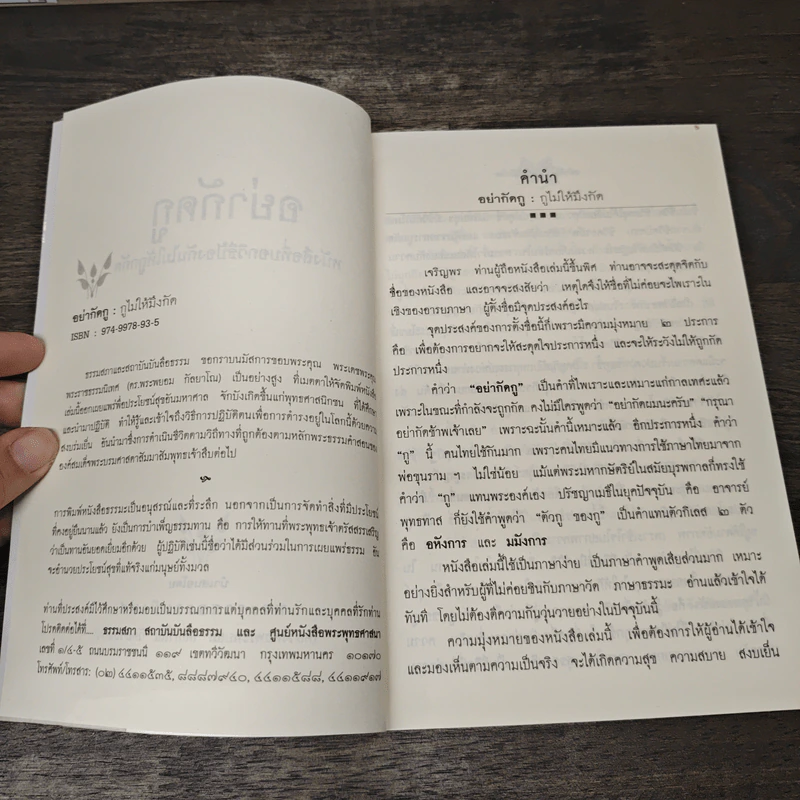 อย่ากัดกู : กูไม่ให้มึงกัด
ISBN : 974-9978-93-5
ธรรมสภาและสถาบันบันลือธรรม ขอกราบนมัสการขอบพระคุณ พระเดชพระคุณ
พระราชธรรมนิเทศ (ดร.พระพยอม กัลยาโณ) เป็นอย่างสูง ที่เมตตาให้จัดพิมพ์หนังสือ
เล่มนี้ออกเผยแพร่เพื่อประโยชน์สุขอันมหาศาล จักบังเกิดขึ้นแก่พุทธศาสนิกชน ที่ได้ศึกษา
และนำมาปฏิบัติ ทำให้รู้และเข้าใจถึงวิธีการปฏิบัติตนเพื่อการดำรงอยู่ในโลกนี้ด้วยความ
สงบร่มเย็น อันนำมาซึ่งการดำเนินชีวิตตามวิถีทางที่ถูกต้องตามหลักพระธรรมคำสอนของ
องค์สมเด็จพระบรมศาสดาสัมมาสัมพุทธเจ้าสืบต่อไป
การพิมพ์หนังสือธรรมะเป็นอนุสรณ์และที่ระลึก นอกจากเป็นการจัดทำสิ่งที่มีประโยชน์
ที่คงอยู่ยืนนานแล้ว ยังเป็นการบำเพ็ญธรรมทาน คือ การให้ทานที่พระพุทธเจ้าตรัสสรรเสริญ
ว่าเป็นทานอันยอดเยี่ยมอีกด้วย ผู้ปฏิบัติเช่นนี้ชื่อว่าได้มีส่วนร่วมในการเผยแพร่ธรรม อัน
จะอำนวยประโยชน์สุขที่แท้จริงแก่มนุษย์ทั้งมวล
ท่านที่ประสงค์มีไว้ศึกษาหรือมอบเป็นบรรณาการแด่บุคคลที่ท่านรักและบุคคลที่รักท่าน
โปรดติดต่อได้ที่... ธรรมสภา สถาบันบันลือธรรม และ ศูนย์หนังสือพระพุทธศาสนา
เลขที่ ๑/๔-๕ ถนนบรมราชชนนี ๑๑๙ เขตทวีวัฒนา กรุงเทพมหานคร ๑๐๑๗๐
โทรศัพท์/โทรสาร: (๐๒) ๔๔๑๑๕๓๕, ๘๘๘๗๙๔๐, ๔๔๑๑๕๘๘, ๔๔๑๑๙๑๗
คำนำ
อย่ากัดกู : กูไม่ให้มึงกัด
เจริญพร ท่านผู้ถือหนังสือเล่มนี้ขึ้นพิศ ท่านอาจจะสะดุดจิตกับ
ชื่อของหนังสือ และอาจจะสงสัยว่า เหตุใดจึงให้ชื่อที่ไม่ค่อยจะไพเราะใน
เชิงของอารยภาษา ผู้ตั้งชื่อมีจุดประสงค์อะไร
จุดประสงค์ของการตั้งชื่อนี้ก็เพราะมีความมุ่งหมาย ๒ ประการ
คือ เพื่อต้องการอยากจะให้สะดุดใจประการหนึ่ง และจะให้ระวังไม่ให้ถูกกัด
ประการหนึ่ง
คำว่า “อย่ากัดกู” เป็นคำที่ไพเราะและเหมาะแก่กาลเทศะแล้ว
เพราะในขณะที่กำลังจะถูกกัด คงไม่มีใครพูดว่า “อย่ากัดผมนะครับ” “กรุณา
อย่ากัดข้าพเจ้าเลย” เพราะฉะนั้นคำนี้เหมาะแล้ว อีกประการหนึ่ง คำว่า
“กู” นี้ คนไทยใช้กันมาก เพราะคนไทยมีแนวทางการใช้ภาษาไทยมาจาก
พ่อขุนราม ฯ ไม่ใช่น้อย แม้แต่พระมหากษัตริย์ในสมัยบุรพกาลก็ทรงใช้
คำว่า “กู” แทนพระองค์เอง ปรัชญาเมธีในยุคปัจจุบัน คือ อาจารย์
พุทธทาส ก็ยังใช้คำพูดว่า “ตัวกู ของกู” เป็นคำแทนตัวกิเลส ๒ ตัว
คือ อหังการ และ มมังการ
หนังสือเล่มนี้ใช้เป็นภาษาง่าย เป็นภาษาคำพูดเสียส่วนมาก เหมาะ
อย่างยิ่งสำหรับผู้ที่ไม่ค่อยชินกับภาษาวัด ภาษาธรรมะ อ่านแล้วเข้าใจได้
ทันที โดยไม่ต้องตีความกันวุ่นวายอย่างในปัจจุบันนี้
ความมุ่งหมายของหนังสือเล่มนี้ เพื่อต้องการให้ผู้อ่านได้เข้าใจ
และมองเห็นตามความเป็นจริง จะได้เกิดความสุข ความสบาย สงบเย็น